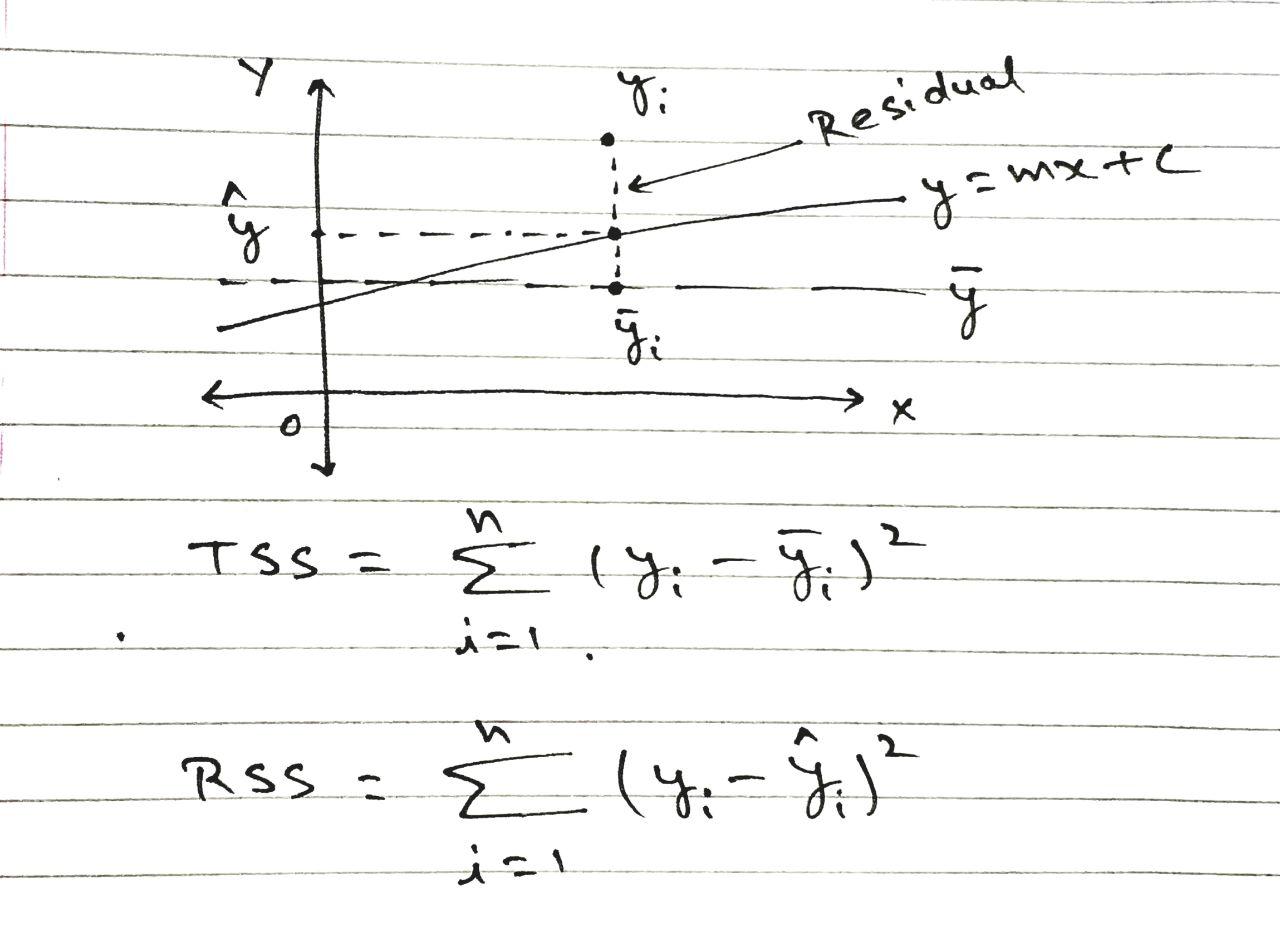 Y
yᵢ
Residual
y = mx + c
ŷ
ȳ
ȳᵢ
0
x
TSS = ∑ᵢ₌₁ⁿ (yᵢ - ȳᵢ)²
RSS = ∑ᵢ₌₁ⁿ (yᵢ - ŷᵢ)²